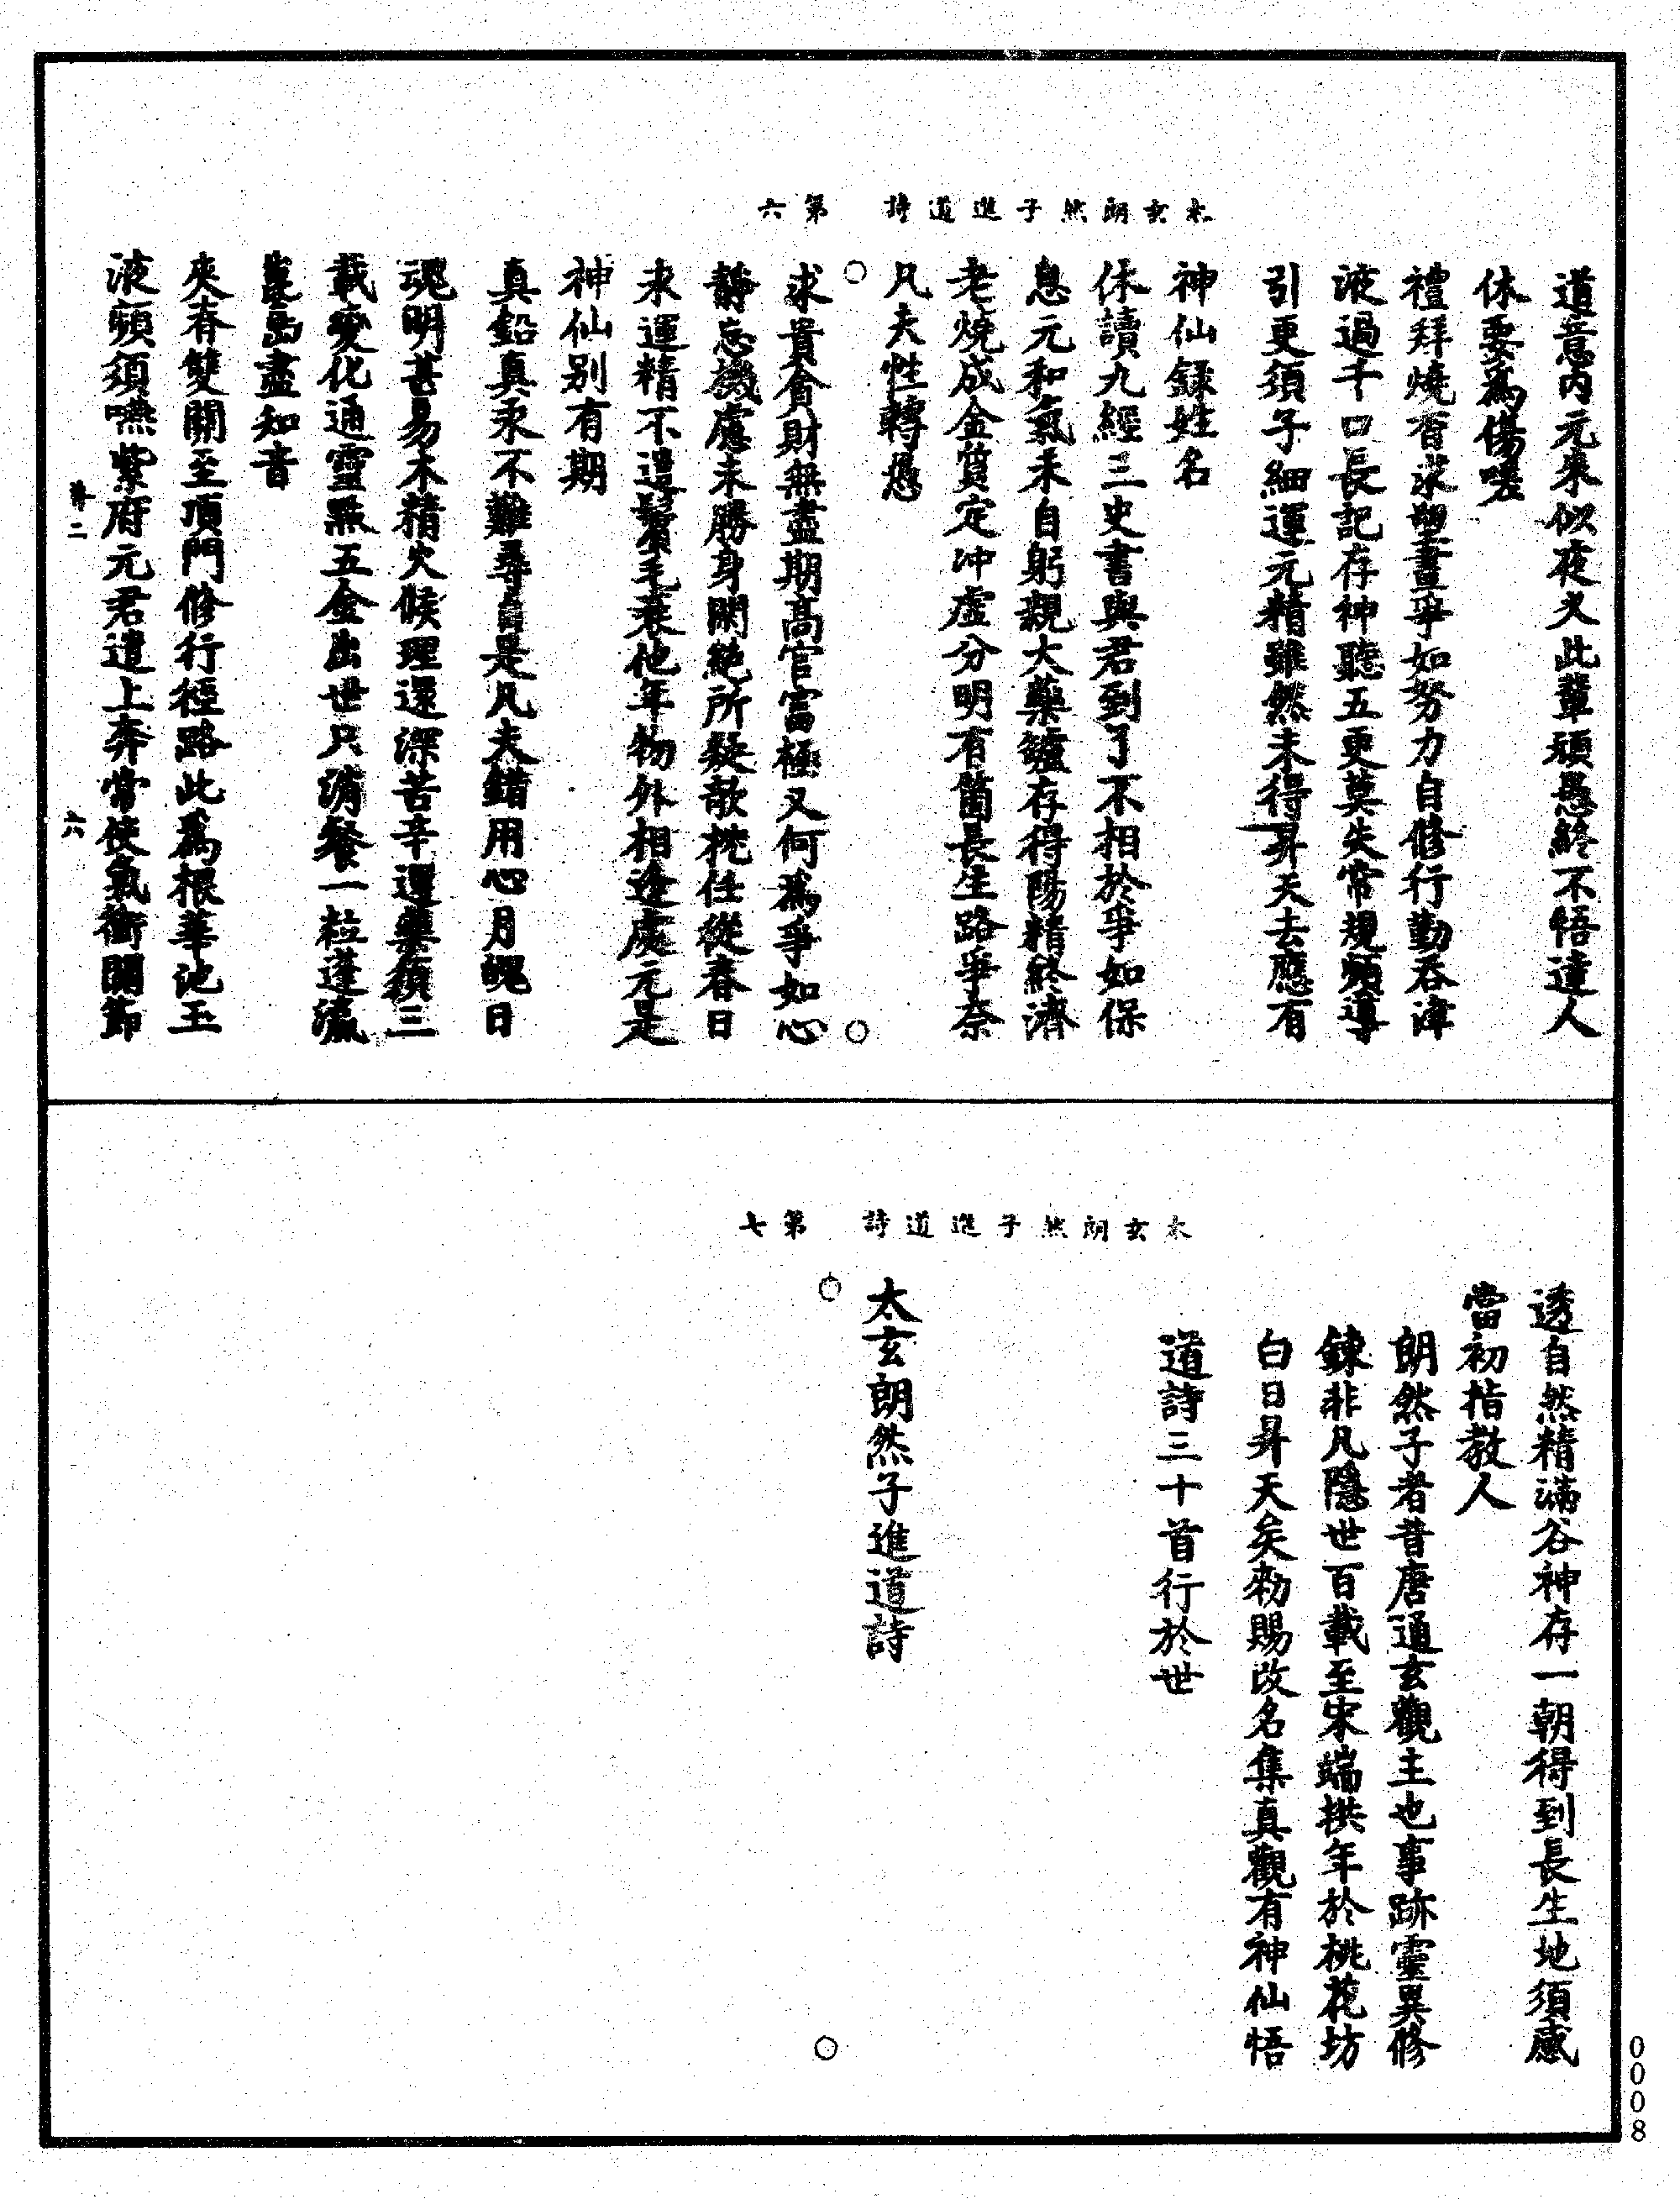 太玄朗然子進道詩　第六
道意内元來似夜叉此輩頑愚終不悟達人
休要爲傷嗟
禮拜燒香求塑畫寧如努力自修行勤吞津
液過千口長記存神聽五更莫失常規頻導
引更須子細運元精雖然未得昇天去應有
神仙録姓名
休讀九經三史書與君到了不相於爭如保
息元和氣未自躬親大藥鑪存得陽精終濟
老燒成金質定冲虚分明有箇長生路爭奈
凡夫性轉愚
求貴貪財無盡期髙官富極又何爲爭如心
靜忘機慮未勝身閑絶所疑欹枕任從春日
永運精不遣鬢毛衰他年物外相逢處元是
神仙别有期
真鉛真汞不難尋自是凡夫錯用心月魄日
魂明甚易木精火候理還深苦辛運藥須三
載變化通靈點五金出世只消餐一粒蓬瀛
崑島盡知音
夾脊雙關至頂門修行徑路此爲根華池玉
液頻須嚥紫府元君遣上奔常使氣衝關節
薄二　六
太玄朗然子進道詩　第七
透自然精滿谷神存一朝得到長生地須感
當初指教人
朗然子者昔唐通玄觀主也事跡靈異修
鍊非凡隱世百載至宋端拱年於桃花坊
白日昇天矣勑賜改名集真觀有神仙悟
道詩三十首行於世
太玄朗然子進道詩
0008